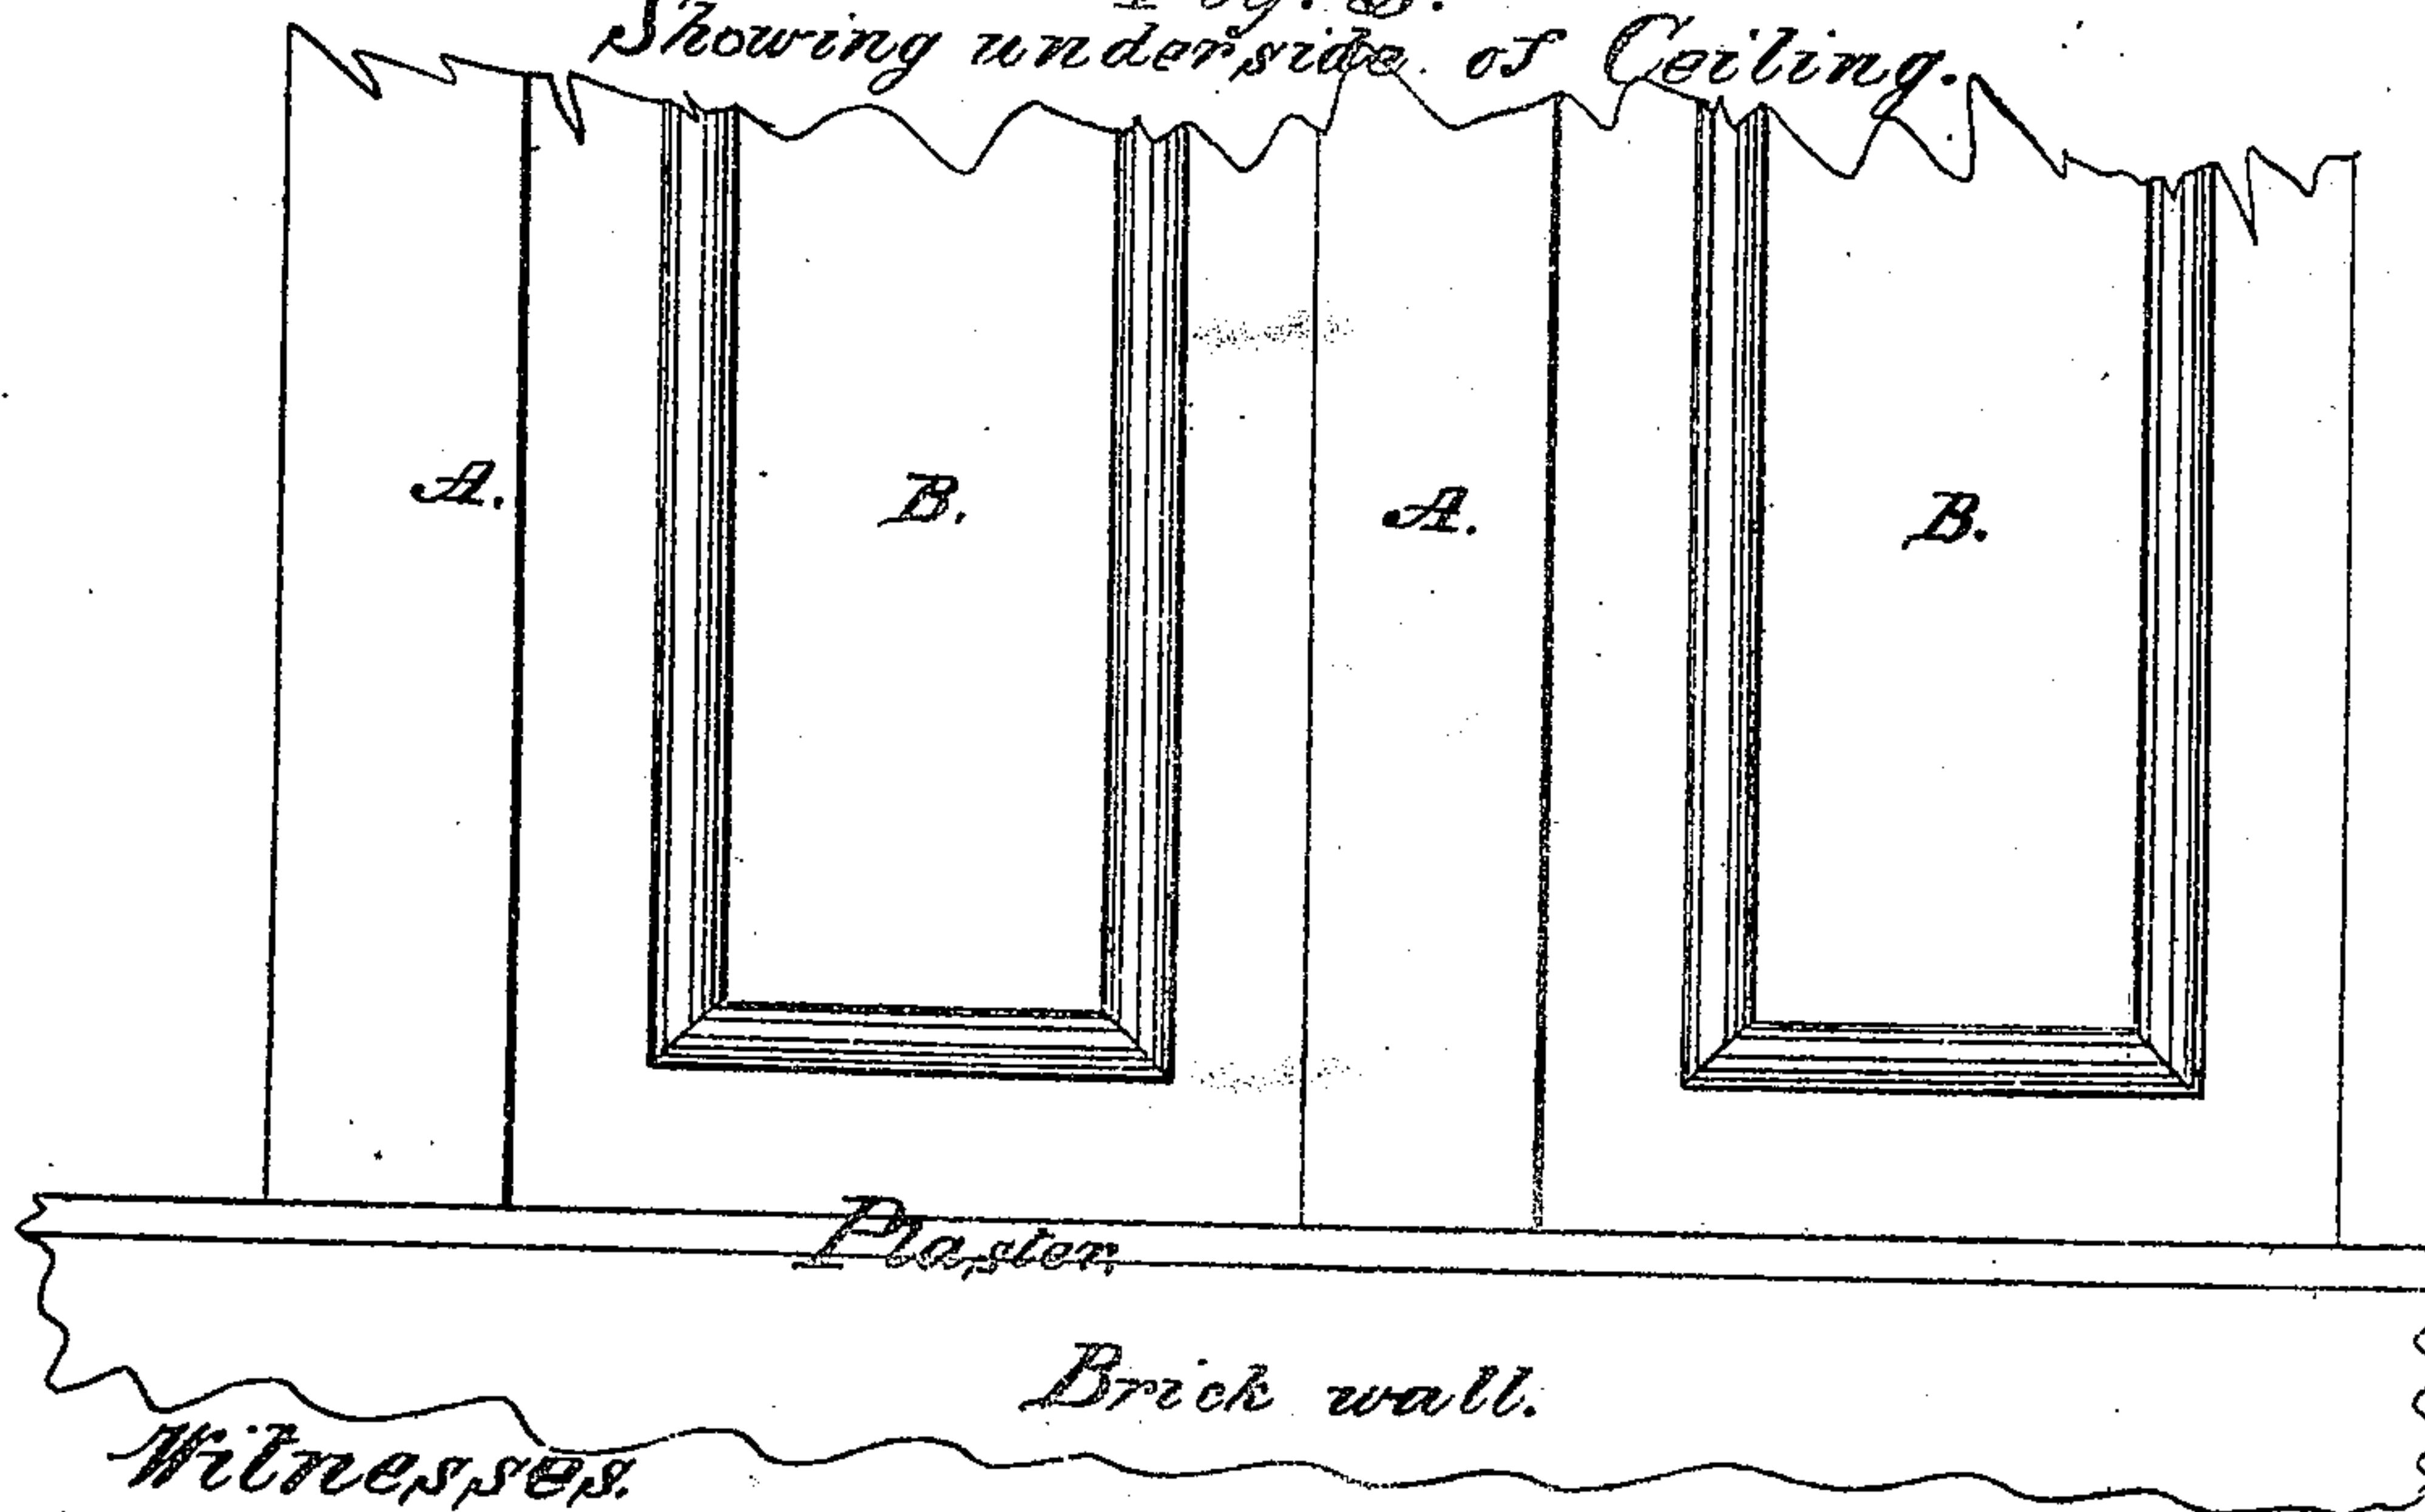 Showing underside of Ceiling.
A. B. A. B.
Plaster.
Brick wall.
Witnesses.